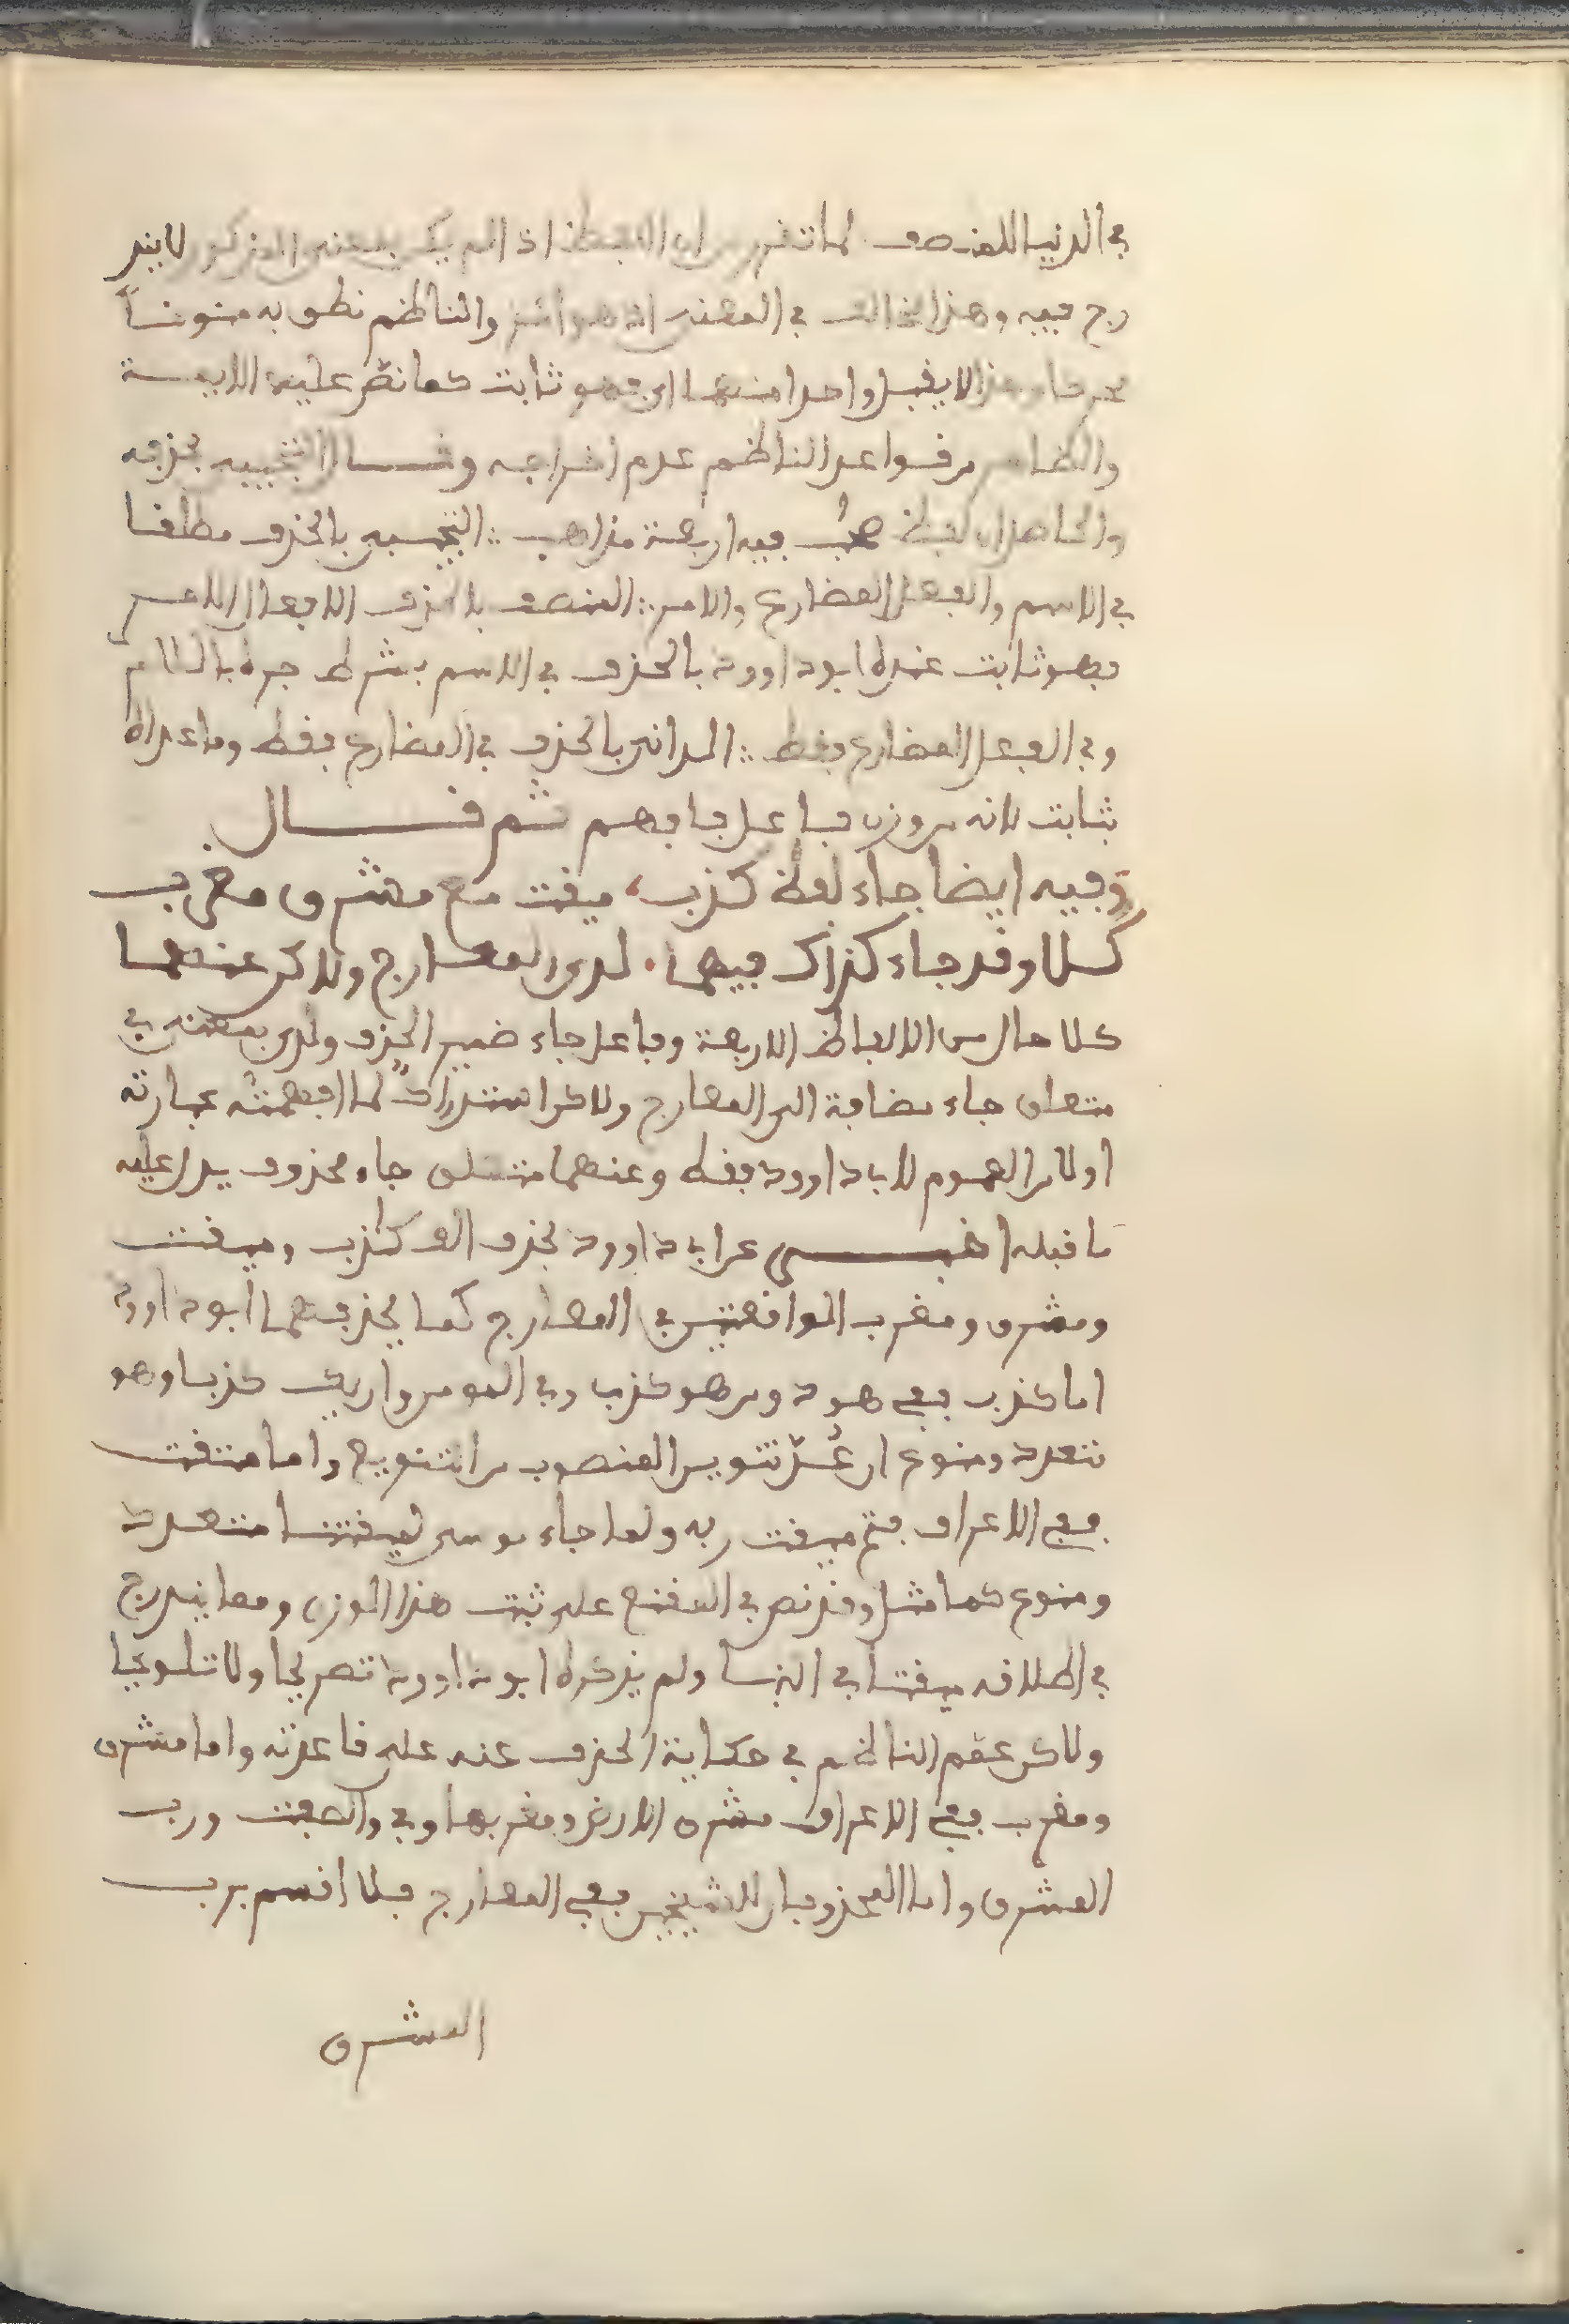 في الدنيا للمنصف لما تقرر ان اللفظ اذا لم يكن بمعنى المذكور لا يند
رج فيه وهذا يخالف في المعنى اذ هو امر والناظم نطق به منونا
مجردا وهذا لا يقبل واحدا منهما اي فهو ثابت كما نص عليه الايمة
والظاهر من قواعد الناظم عدم اندراجه وقال التجيبي بحذفه
والحاصل ان لفظ صحب فيه اربعة مذاهب ∴ التجيبي بالحذف مطلقا
في الاسم والفعل المضارع والامر ∴ المنصف بالحذف الا فعل الامر
فهو ثابت عنده ابو داوود بالحذف في الاسم بشرط جره باللام
وفي الفعل المضارع فقط ∴ الداني بالحذف في المضارع فقط وما عداه
ثابت لانه من وزن فاعل فافهم ثم قال
وفيه ايضا جاء لفظ كذب ميقت مع مشرق مغرب
كلا وقد جاء كذاك فيهما لدى المعارج ولاكن عنهما
كلا حال من الالفاظ الاربعة وفاعل جاء ضمير الحذف ولدى بمعنى في
متعلق جاء مضافة الى المعارج ولاكن استدراك لما افهمته عبارته
اولا من العموم لابي داوود فقط وعنهما متعلق جاء محذوف يدل عليه
ما قبله اخبـــر عن ابي داوود بحذف الف كذب وميقت
ومشرق ومغرب الواقعين في المعارج كما يحذفهما ابو داوود
اما كذب ففي هود ومن هو كذب وفي المومن وان يك كذبا وهو
متعدد ومنوع ان عد تنوين المنصوب من التنويع واما ميقت
ففي الاعراف فتم ميقت ربه ولما جاء موسى لميقتنا متعدد
ومنوع كما مثل وقد نص في المقنع على ثبت هذا الوزن ومما يندرج
في اطلاقه ميقتا في النبا ولم يذكره ابو داوود تصريحا ولا تلويحا
ولاكن عمم الناظم في حكاية الحذف عنه على قاعدته واما مشرق
ومغرب ففي الاعراف مشرق الارض ومغربها وفي والصفت ورب
المشرق واما المحذوفان للشيخين ففي المعارج فلا اقسم برب
المشرق